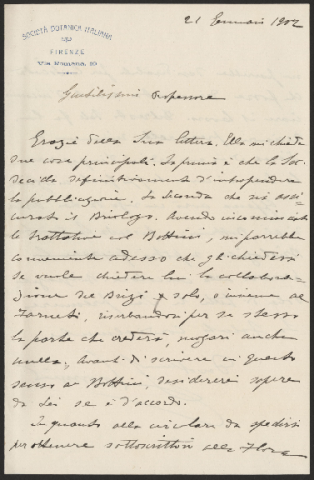 SOCIETÀ BOTANICA ITALIANA
FIRENZE
VIA ROMANA 19
21 Gennaio 1902
Gentilissimo Professore
Grazie della Sua lettera. Ella mi chiede
due cose principali. La prima è che la So-
decida definitivamente d'intraprendere
la pubblicazione. La seconda che sia assi-
curato il Briologo. Avendo incominciato
le trattative col Bottini, mi parrebbe
conveniente adesso che gli chiedessi
se vuole chiedere lui la collabora-
zione del Brizi solo, o insieme al
Farneti, riserbandosi per se stesso
la parte che crederà, magari anche
nulla. Avanti di scrivere in questo
senso al Bottini, desidererei sapere
da Lei se è d'accordo.
In quanto alla circolare da spedirsi
per ottenere sottoscrittori alla Flora